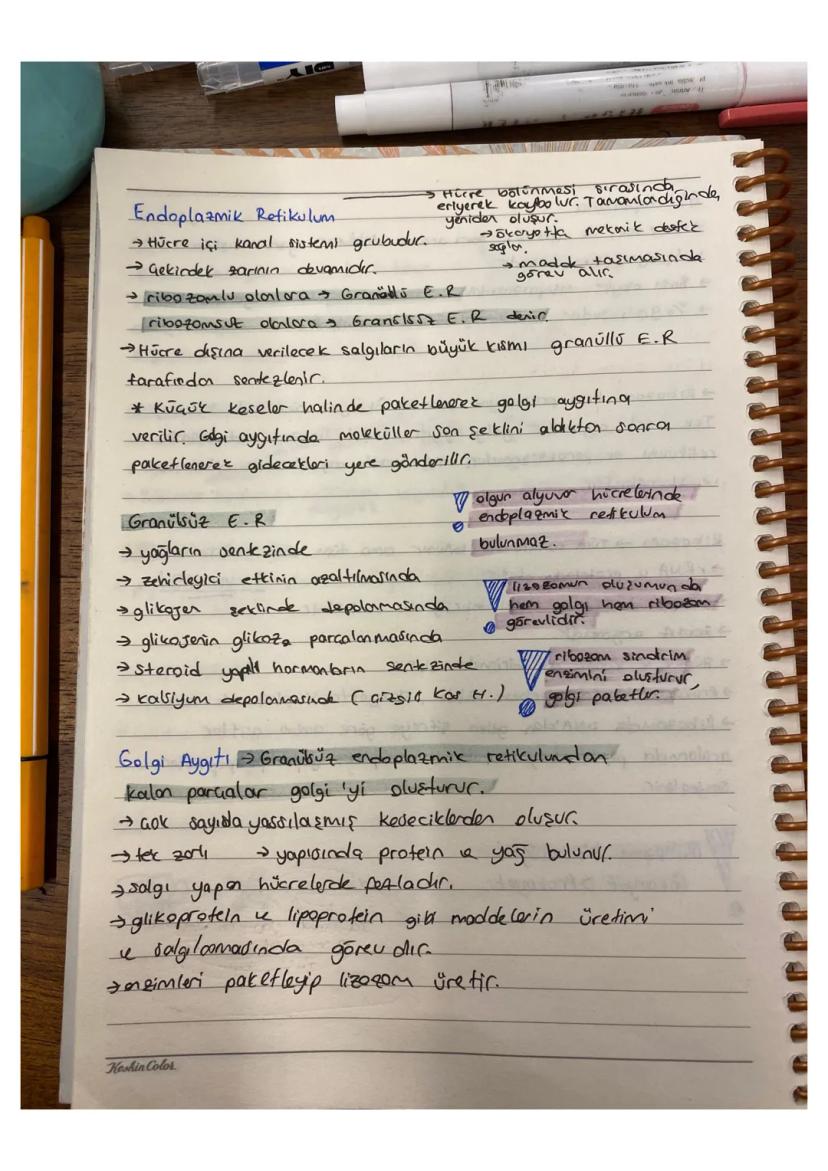 → Hücre bölünmesi sırasında
eriyerek kaybolur. Tamamlandığında,
yeniden oluşur.
Endoplazmik Retikulum
→ Hücre içi kanal sistemi grubudur.
→ ökaryotta mekanik destek
sağlar.
→ Çekirdek zarının devamıdır.
→ madde taşımasında
görev alır.
→ ribozomlu olanlara → Granüllü E.R
ribozomsuz olanlara → Granülsüz E.R denir.
→ Hücre dışına verilecek salgıların büyük kısmı granüllü E.R
tarafından sentezlenir.
* Küçük keseler halinde paketlenerek golgi aygıtına
verilir. Golgi aygıtında moleküller son şeklini aldıktan sonra
paketlenerek gidecekleri yere gönderilir.
olgun alyuvar hücrelerinde
endoplazmik retikulum
bulunmaz.
Granülsüz E.R
→ yağların sentezinde
→ zehirleyici etkinin azaltılmasında
→ glikojen şeklinde depolanmasında
lizozomun oluşumunda
hem golgi hem ribozom
görevlidir.
→ glikojenin glikoza parçalanmasında
→ steroid yapılı hormonların sentezinde
→ kalsiyum depolanmasında ( Çizgili Kas H. )
ribozom sindirim
enzimini oluşturur,
golgi paketler.
Golgi Aygıtı → Granülsüz endoplazmik retikulumdan
kalan parçalar golgi'yi oluşturur.
→ çok sayıda yassılaşmış keseciklerden oluşur.
→ tek zarlı → yapısında protein ve yağ bulunur.
→ salgı yapan hücrelerde fazladır.
→ glikoprotein ve lipoprotein gibi maddelerin üretimi
ve salgılanmasında görevlidir.
→ enzimleri paketleyip lizozom üretir.
Keskin Color